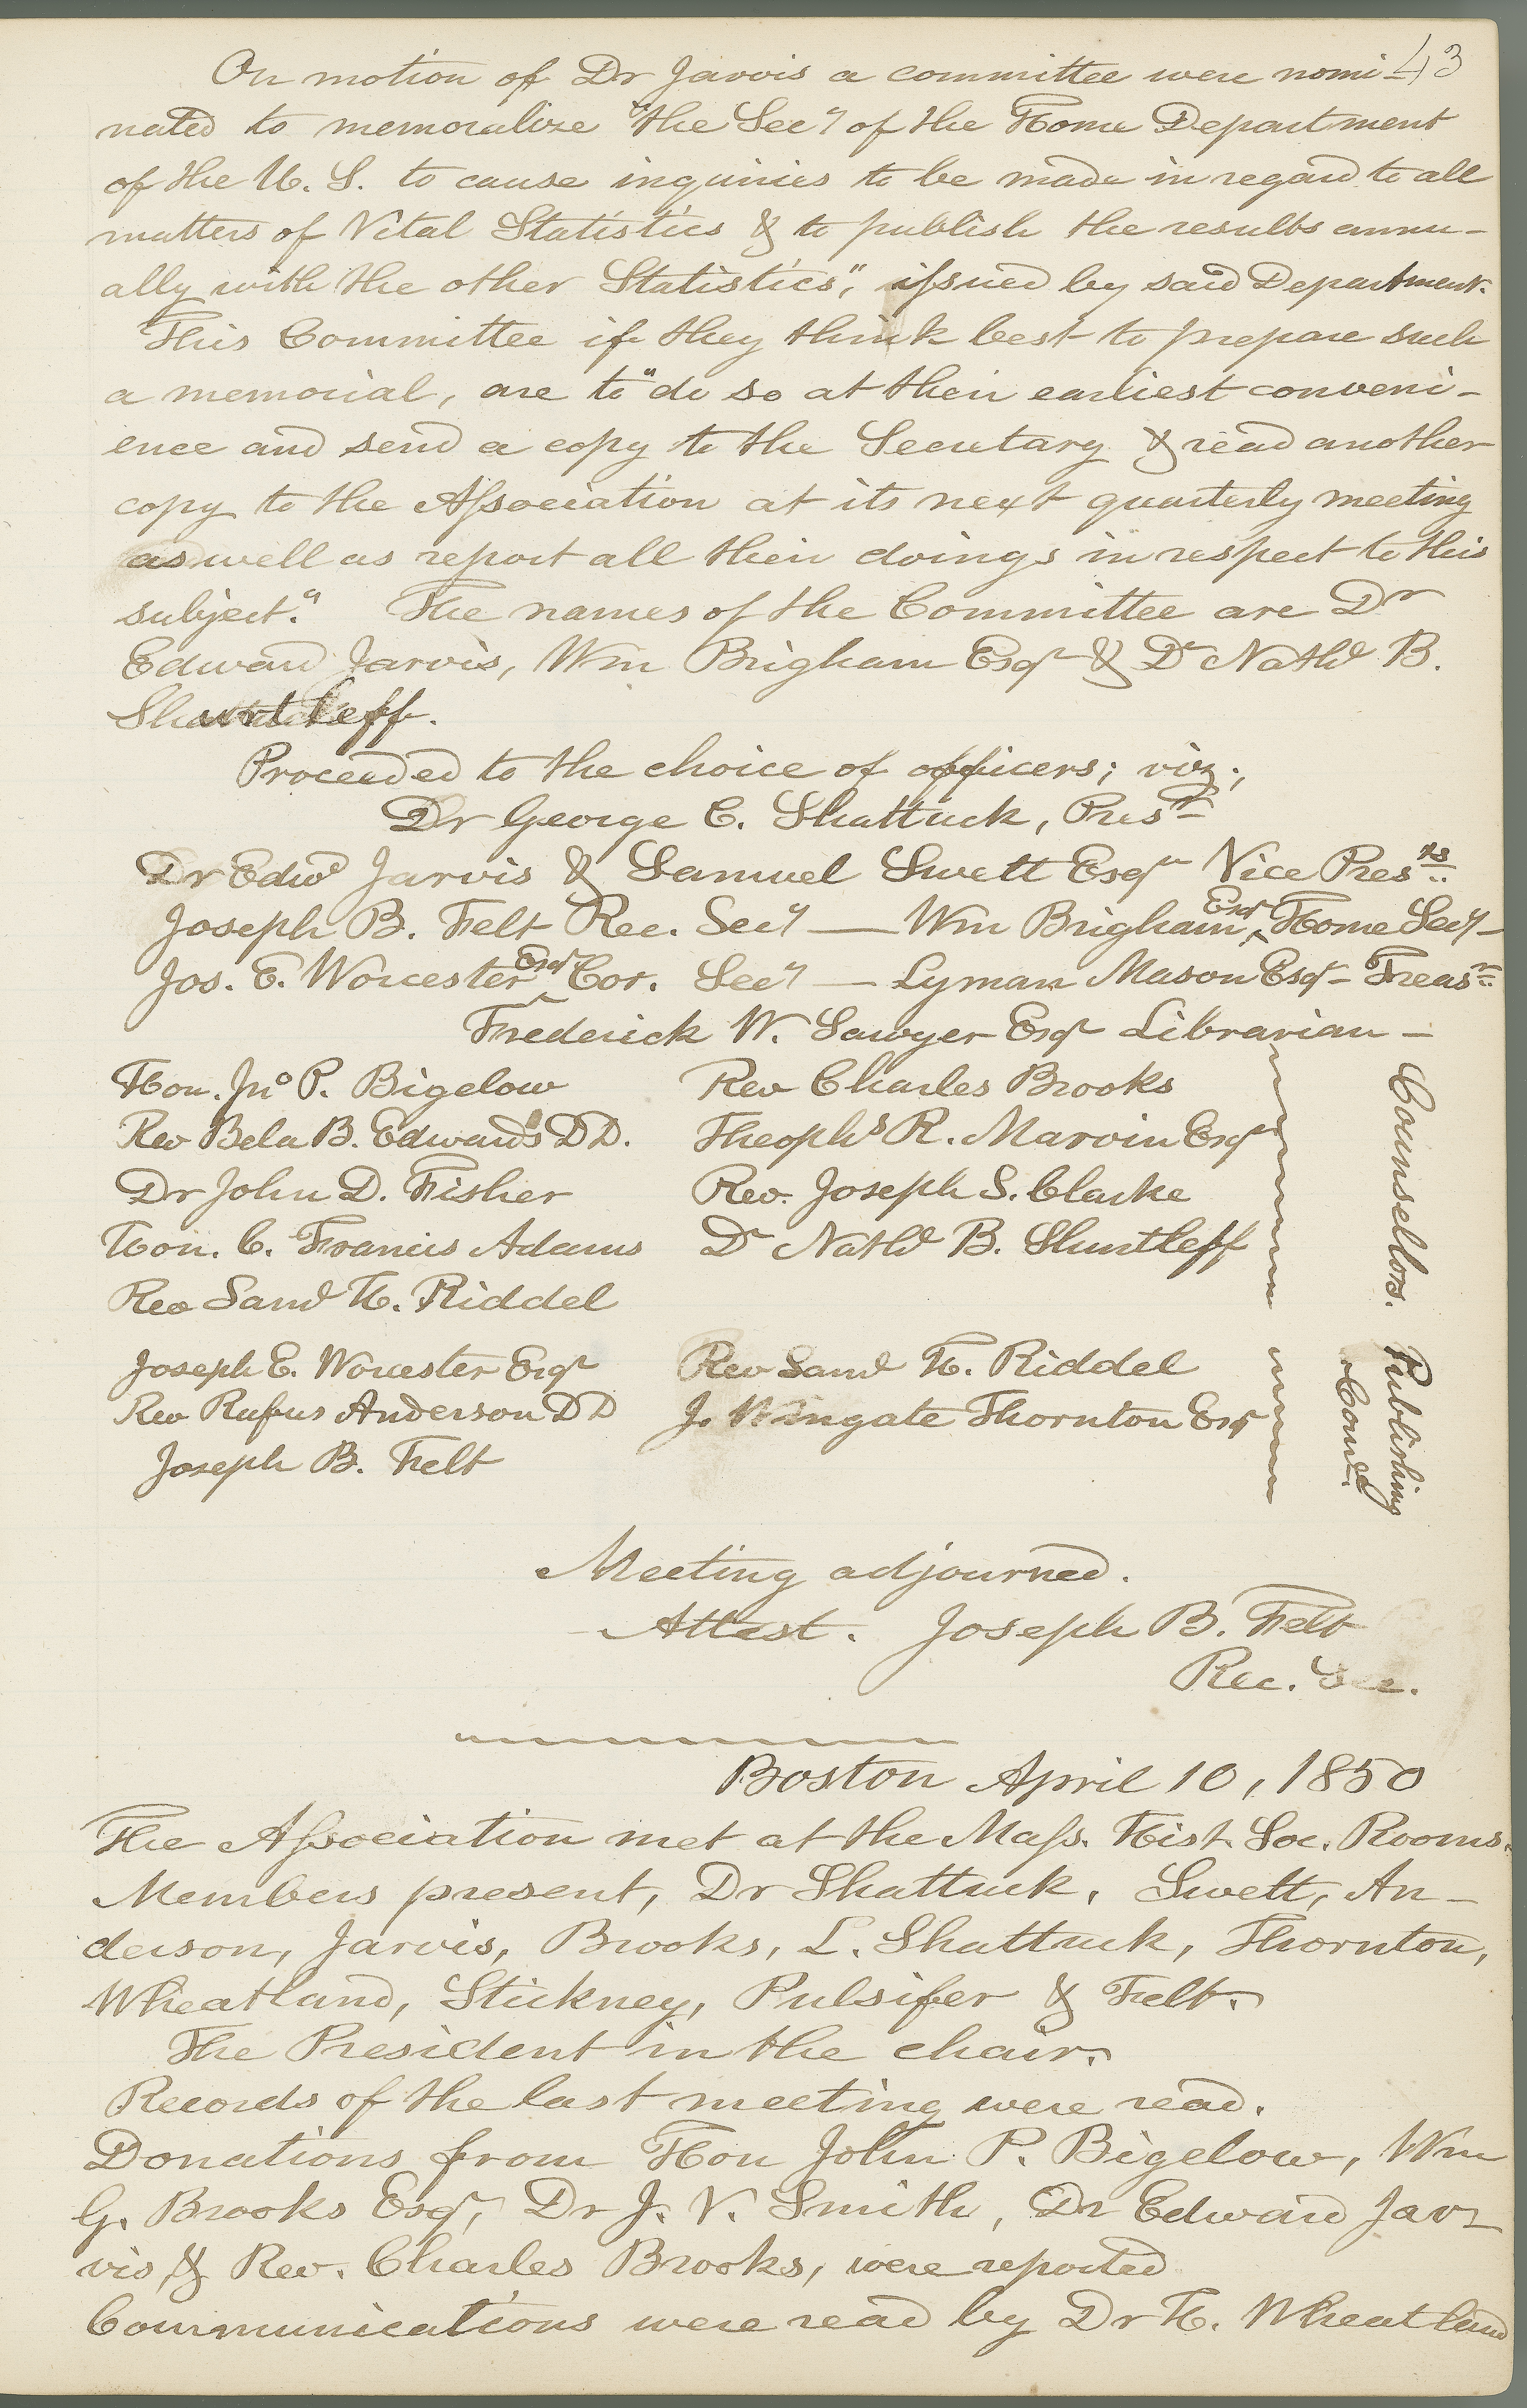 43
On motion of Dr Jarvis a committee were nomi-
nated to memoralize "the Secy of the Home Department
of the U. S. to cause inquiries to be made in regard to all
matters of Vital Statistics & to publish the results annu-
ally with the other Statistics", issued by said Department.
This Committee if they think best to prepare such
a memorial, are to "do so at their earliest conveni-
ence and send a copy to the Secretary & read another
copy to the Association at its next quarterly meeting
as well as report all their doings in respect to this
subject." The names of the Committee are Dr
Edward Jarvis, Wm Brigham Esqr & Dr Nathl B.
Shurtleff.
Proceeded to the choice of officers; viz;
Dr George C. Shattuck, Prest
Dr Edwd Jarvis & Samuel Swett Esqr Vice Presnts
Joseph B. Felt Rec. Secy — Wm Brigham Esqr Home Secy —
Jos. E. Worcester Esqr Cor. Secy — Lyman Mason Esqr - Treasr
Frederick W. Sawyer Esqr Librarian —
Hon. Jno P. Bigelow Rev Charles Brooks
Rev Bela B. Edwards DD. Theophs R. Marvin Esqr
Dr John D. Fisher Rev. Joseph S. Clarke
Hon. C. Francis Adams Dr Nathl B. Shurtleff
Rev Saml H. Riddel
Counsellors.
Joseph E. Worcester Esqr Rev Saml H. Riddel
Rev Rufus Anderson DD J. Wingate Thornton Esqr
Joseph B. Felt
Publishing
Comee.
Meeting adjourned.
Attest. Joseph B. Felt
Rec. Sec.
Boston April 10, 1850
The Association met at the Mass. Hist. Soc. Rooms.
Members present, Dr Shattuck, Swett, An-
derson, Jarvis, Brooks, L. Shattuck, Thornton,
Wheatland, Stickney, Pulsifer & Felt.
The President in the chair.
Records of the last meeting were read.
Donations from Hon John P. Bigelow, Wm
G. Brooks Esqr, Dr J. V. Smith, Dr Edward Jar-
vis, & Rev. Charles Brooks, were reported
Communications were read by Dr H. Wheatland